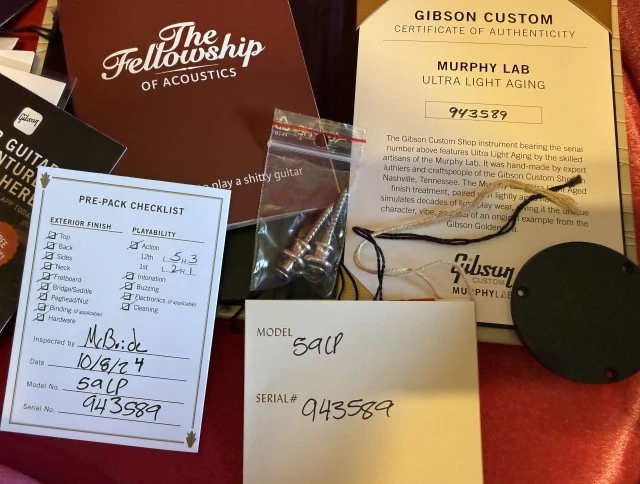 The
Fellowship
OF ACOUSTICS
play a shitty guitar
Gibson
GUITAR
HERE
GIBSON CUSTOM
CERTIFICATE OF AUTHENTICITY
MURPHY LAB
ULTRA LIGHT AGING
943589
The Gibson Custom Shop instrument bearing the serial
number above features Ultra Light Aging by the skilled
artisans of the Murphy Lab. It was hand-made by expert
luthiers and craftspeople of the Gibson Custom Shop
Nashville, Tennessee. The Aged
finish treatment, paired lightly
simulates decades of play wear, it the unique
character, vibe, of an original example from the
Gibson Golden
Gibson
CUSTOM
MURPHY LAB
PRE-PACK CHECKLIST
EXTERIOR FINISH
Top
Back
Sides
Neck
Fretboard
Bridge/Saddle
Peghead/Nut
Binding (if applicable)
Hardware
PLAYABILITY
Action
12th L 5 H 3
1st L 2 H 1
Intonation
Buzzing
Electronics (if applicable)
Cleaning
Inspected by McBride
Date 10/8/24
Model No. 59LP
Serial No. 943589
MODEL
59LP
SERIAL# 943589